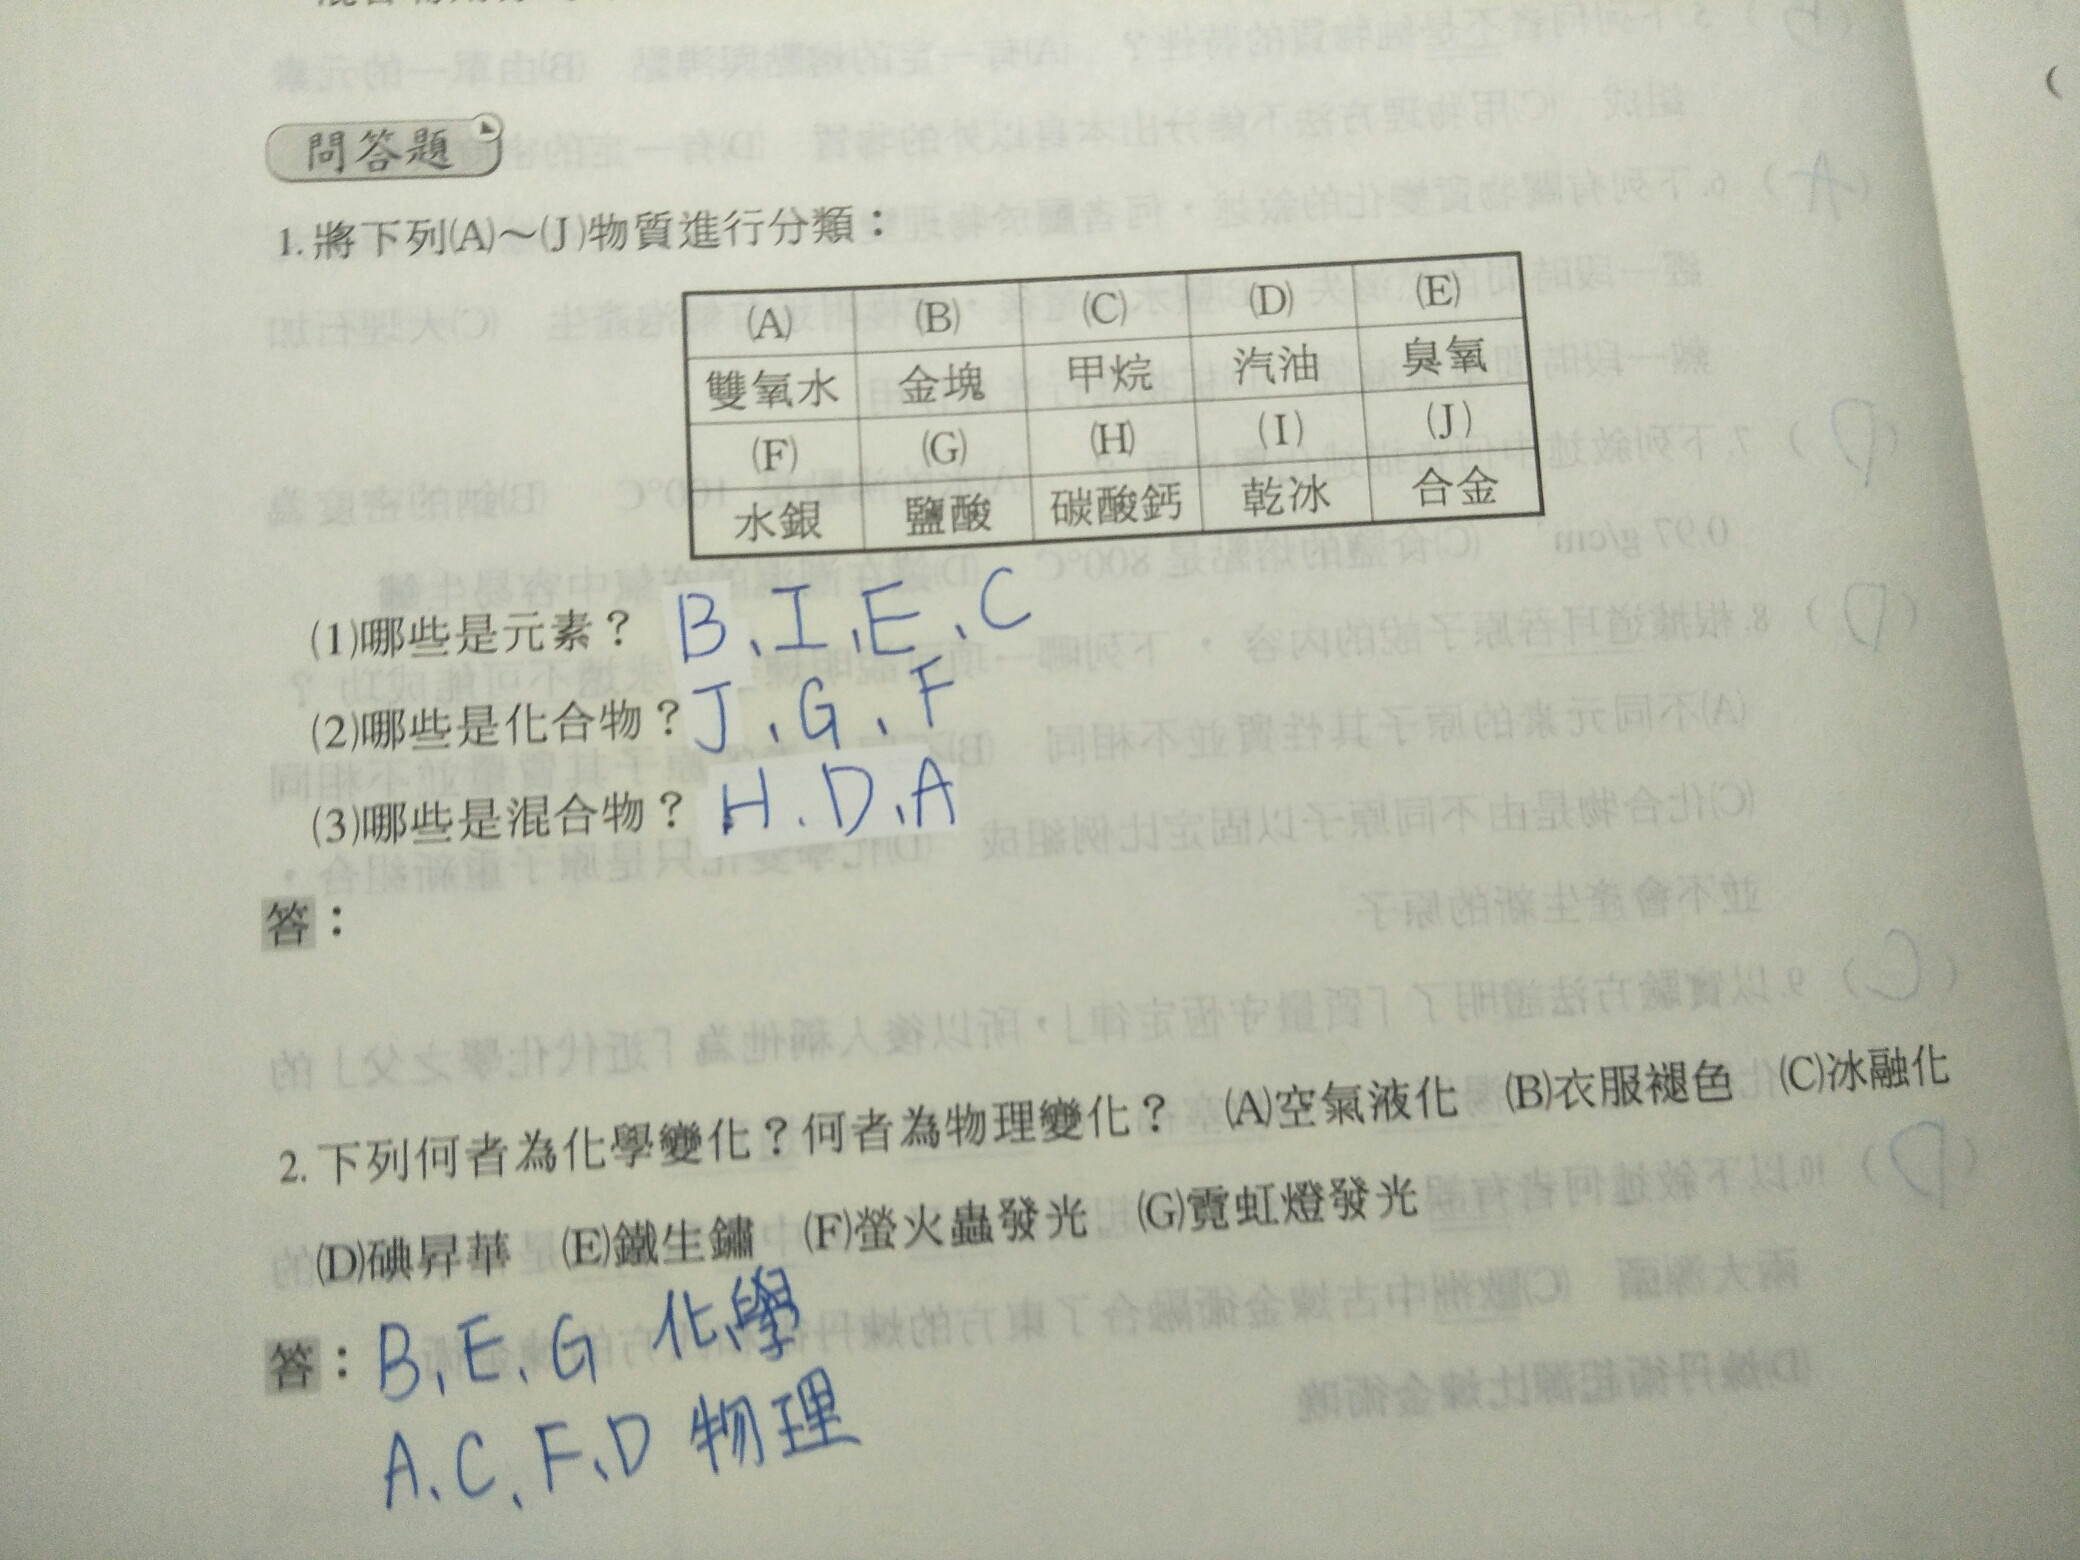 問答題
1.將下列(A)～(J)物質進行分類：
(A) (B) (C) (D) (E)
雙氧水 金塊 甲烷 汽油 臭氧
(F) (G) (H) (I) (J)
水銀 鹽酸 碳酸鈣 乾冰 合金
(1)哪些是元素？ B、I、E、C
(2)哪些是化合物？ J、G、F
(3)哪些是混合物？ H、D、A
答：
2.下列何者為化學變化？何者為物理變化？ (A)空氣液化 (B)衣服褪色 (C)冰融化
(D)碘昇華 (E)鐵生鏽 (F)螢火蟲發光 (G)霓虹燈發光
答：B、E、G 化學
A、C、F、D 物理